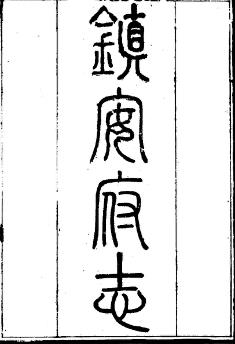 鎮安府志